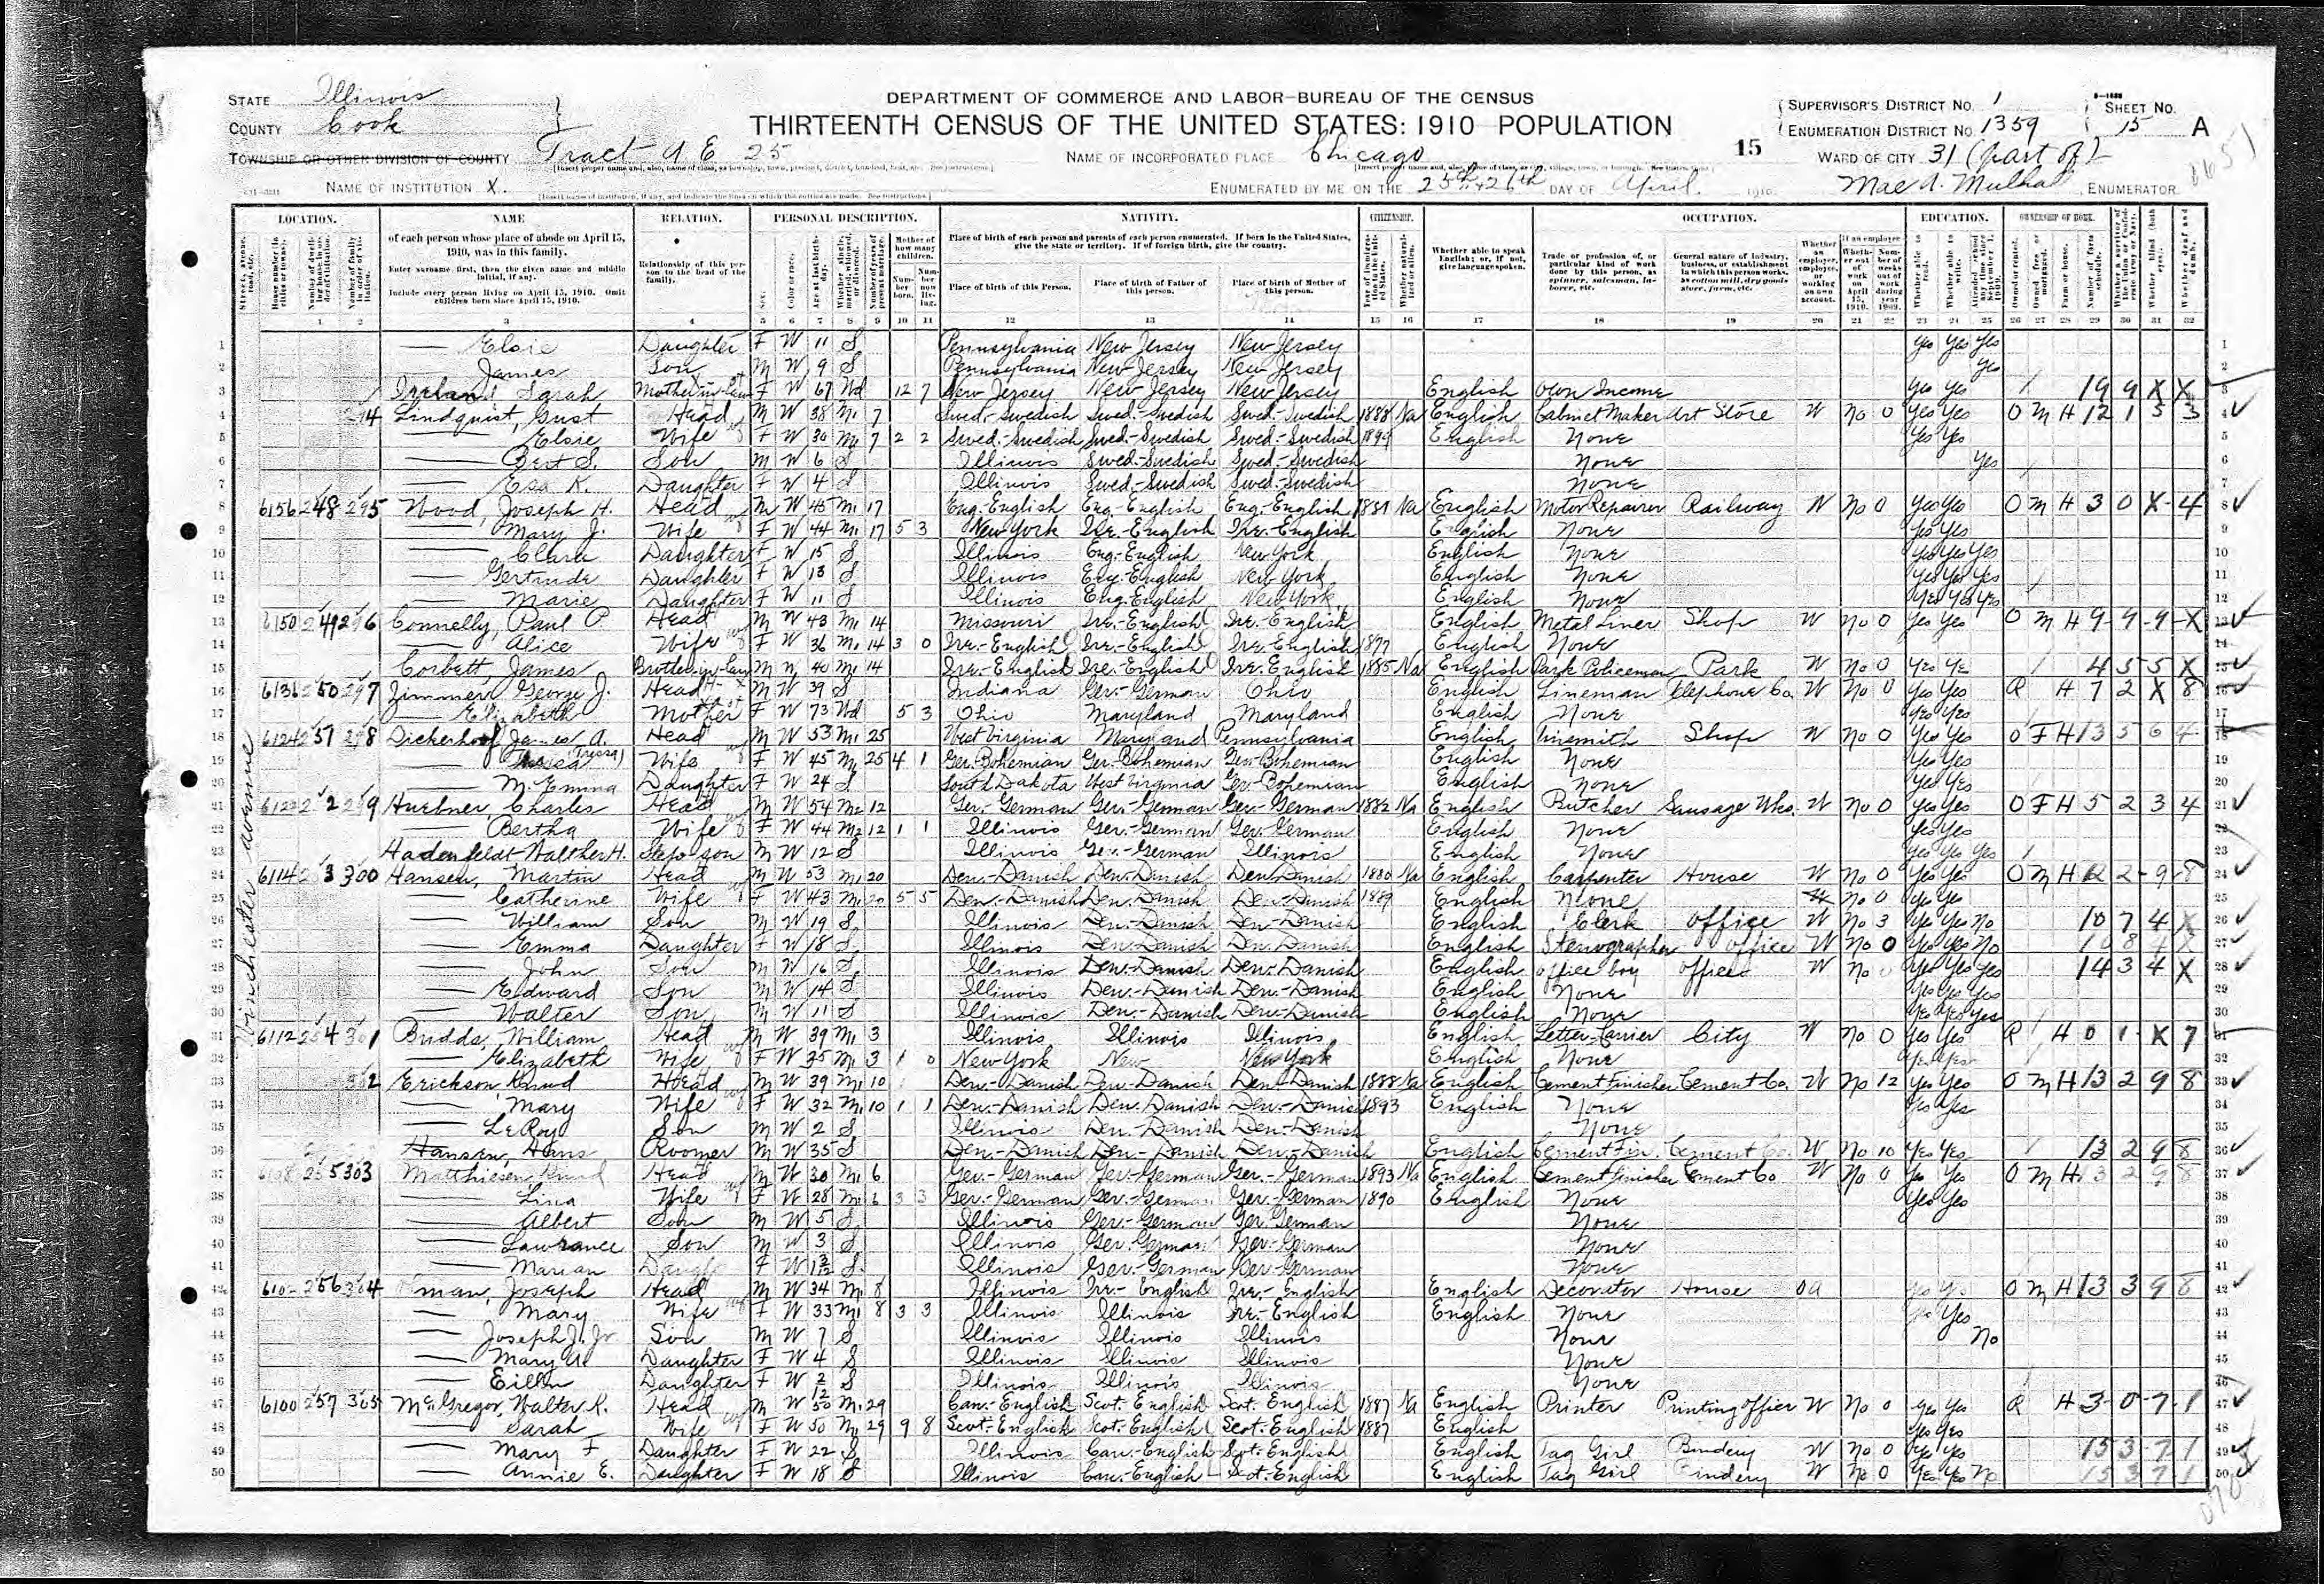 STATE Illinois
COUNTY Cook
TOWNSHIP OR OTHER DIVISION OF COUNTY Tract 9 E 25
NAME OF INSTITUTION X.
DEPARTMENT OF COMMERCE AND LABOR-BUREAU OF THE CENSUS
THIRTEENTH CENSUS OF THE UNITED STATES: 1910 POPULATION
NAME OF INCORPORATED PLACE Chicago
ENUMERATED BY ME ON THE 25th & 26th DAY OF April, 1910.
15
SUPERVISOR'S DISTRICT No. 1
ENUMERATION DISTRICT No. 1359
SHEET No. 15 A
WARD OF CITY 31 (part of)
Mae A. Mulhall, ENUMERATOR
LOCATION. NAME RELATION. PERSONAL DESCRIPTION. NATIVITY. CITIZENSHIP. OCCUPATION. EDUCATION. OWNERSHIP OF HOME.
of each person whose place of abode on April 15, 1910, was in this family.
Enter surname first, then the given name and middle initial, if any.
Include every person living on April 15, 1910. Omit children born since April 15, 1910.
Relationship of this person to the head of the family.
Place of birth of each person and parents of each person enumerated. If born in the United States, give the state or territory. If of foreign birth, give the country.
Place of birth of this Person. Place of birth of Father of this person. Place of birth of Mother of this person.
Whether able to speak English; or, if not, give language spoken.
Trade or profession of, or particular kind of work done by this person, as spinner, salesman, laborer, etc.
General nature of industry, business, or establishment in which this person works, as cotton mill, dry goods store, farm, etc.
Winchester avenue
1 — Elsie Daughter F W 11 S Pennsylvania New Jersey New Jersey Yes Yes Yes
2 — James Son M W 9 S Pennsylvania New Jersey New Jersey Yes
3 Sarah Mother-in-law F W 67 Wd 12 7 New Jersey New Jersey New Jersey English Own Income Yes Yes 19 9 X X
4 Lindquist, Gust Head M W 38 M1 7 Swed.-Swedish Swed.-Swedish Swed.-Swedish 1888 Na English Cabinet Maker Art Store W No 0 Yes Yes O M H 12 1 5 3
5 — Elsie Wife F W 30 M1 7 2 2 Swed.-Swedish Swed.-Swedish Swed.-Swedish English None Yes Yes
6 — Bert S. Son M W 6 S Illinois Swed.-Swedish Swed.-Swedish None Yes
7 — Daughter F W 4 S Illinois Swed.-Swedish Swed.-Swedish None
8 6156 248 295 Wood, Joseph H. Head M W 45 M1 17 Eng.-English Eng.-English Eng.-English Na English Motor Repairer Railway W No 0 Yes Yes O M H 3 0 X 4
9 — Mary J. Wife F W 44 M1 17 5 3 New York Ire.-English Ire.-English English None Yes Yes
10 — Clara Daughter F W 15 S Illinois Eng.-English New York English None Yes Yes Yes
11 — Gertrude Daughter F W 13 S Illinois Eng.-English New York English None Yes Yes Yes
12 — Marie Daughter F W 11 S Illinois Eng.-English New York English None Yes Yes Yes
13 6150 249 296 Connelly, Paul P. Head M W 43 M1 14 Missouri Ire.-English Ire.-English English Shop W No 0 Yes Yes O M H 9 9 9 X
14 — Alice Wife F W 36 M1 14 3 0 Ire.-English Ire.-English Ire.-English English None
15 Corbett, James Brother-in-law M W 40 M1 14 Ire.-English Ire.-English Ire.-English 1885 Na English Park Policeman Park W No 0 Yes Yes 4 5 5 X
16 6136 250 297 Zimmer, George J. Head M W 39 S Indiana Ger.-German Ohio English Lineman Telephone Co. W No 0 Yes Yes R H 7 2 X 8
17 — Elizabeth Mother F W 73 Wd 5 3 Ohio Maryland Maryland English None Yes Yes
18 6124 251 298 Dickerhoof, James A. Head M W 53 M1 25 West Virginia Maryland Pennsylvania English Tinsmith Shop W No 0 Yes Yes O F H 13 5 6 4
19 — Wife F W 45 M1 25 4 1 Ger.Bohemian Ger.Bohemian Ger.-Bohemian English None Yes Yes
20 — M. Emma Daughter F W 24 S South Dakota West Virginia Ger.-Bohemian English None Yes Yes
21 6122 252 299 Huebner, Charles Head M W 54 M2 12 Ger.-German Ger.-German Ger.-German 1882 Na English Butcher Sausage Whs. W No 0 Yes Yes O F H 5 2 3 4
22 — Bertha Wife F W 44 M2 12 1 1 Illinois Ger.-German Ger.-German English None Yes Yes
23 Hadenfeldt Walther H. Step-son M W 12 S Illinois Ger.-German Illinois English None Yes Yes Yes
24 6114 253 300 Hansen, Martin Head M W 53 M1 20 Den.-Danish Den.-Danish Den.-Danish 1880 Na English Carpenter House W No 0 Yes Yes O M H 2 2 9 8
25 — Catherine Wife F W 43 M1 20 5 5 Den.-Danish Den.-Danish Den.-Danish 1889 English None No 0 Yes Yes
26 — William Son M W 19 S Illinois Den.-Danish Den.-Danish English Clerk Office W No 3 Yes Yes No 10 7 4 X
27 — Emma Daughter F W 18 S Illinois Den.-Danish Den.-Danish English Stenographer Office W No 0 Yes Yes No
28 — John Son M W 16 S Illinois Den.-Danish Den.-Danish English Office boy Office W No Yes Yes Yes 14 3 4 X
29 — Edward Son M W 14 S Illinois Den.-Danish Den.-Danish English None Yes Yes Yes
30 — Walter Son M W 11 S Illinois Den.-Danish Den.-Danish English None Yes Yes Yes
31 6112 254 301 Budds, William Head M W 39 M1 3 Illinois Illinois Illinois English Letter-Carrier City W No 0 Yes Yes R H 0 1 X 7
32 — Elizabeth Wife F W 35 M1 3 1 0 New York New New York English None Yes Yes
33 302 Erickson, Knud Head M W 39 M1 10 Den.-Danish Den.-Danish Den.-Danish 1888 Na English Cement Finisher Cement Co. W No 12 Yes Yes O M H 13 2 9 8
34 — Mary Wife F W 32 M1 10 1 1 Den.-Danish Den.-Danish Den.-Danish 1893 English None Yes Yes
35 — LeRoy Son M W 2 S Illinois Den.-Danish Den.-Danish None
36 Hansen, Hans Roomer M W 35 S Den.-Danish Den.-Danish Den.-Danish English Cement Fin. Cement Co. W No 10 Yes Yes 13 2 9 8
37 6108 255 303 Matthiesen, Head M W 30 M1 6 Ger.-German Ger.-German Ger.-German 1893 Na English Cement Finisher Cement Co W No 0 Yes Yes O M H 13 2 9 8
38 — Lina Wife F W 28 M1 6 3 3 Ger.-German Ger.-German Ger.-German 1890 English None Yes Yes
39 — Albert Son M W 5 S Illinois Ger.-German Ger.-German None
40 — Lawrance Son M W 3 S Illinois Ger.-German Ger.-German None
41 — Marian F W S Illinois Ger.-German Ger.-German None
42 256 304 Joseph Head M W 34 M1 8 Illinois Ire.-English Ire.-English English Decorator House OA Yes Yes O M H 13 3 9 8
43 — Mary Wife F W 33 M1 8 3 3 Illinois Illinois Ire.-English English None Yes Yes
44 — Joseph J. Jr. Son M W 7 S Illinois Illinois Illinois None No
45 — Mary Daughter F W 4 S Illinois Illinois Illinois None
46 — Eillen Daughter F W 2/12 S Illinois Illinois Illinois None
47 6100 257 305 McGregor, Walter R. Head M W 50 M1 29 Can.-English Scot.-English Scot.-English 1887 Na English Printer Printing office W No 0 Yes Yes R H 3 0 7 1
48 — Sarah Wife F W 50 M1 29 9 8 Scot.-English Scot.-English Scot.-English 1887 English Yes Yes
49 — Mary F Daughter F W 22 S Illinois Can.-English Scot.-English English Tag Girl Bindery W No 0 Yes Yes 15 3 7 1
50 — Annie E. Daughter F W 18 S Illinois Can.-English Scot.-English English Tag Girl Bindery W No 0 Yes Yes No 15 3 7 1